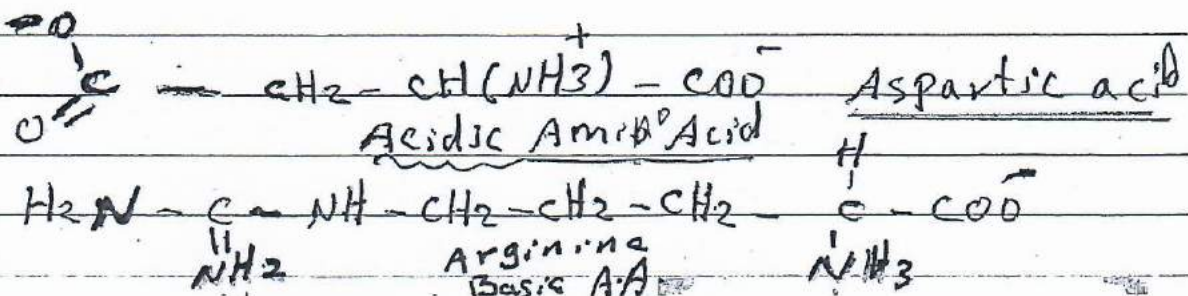 -O
+
C — CH2 - CH(NH3) - COO- Aspartic acid
O
Acidic Amino Acid
H
H2N - C - NH - CH2 - CH2 - CH2 - C - COO-
NH2 Arginine NH3
Basic A.A